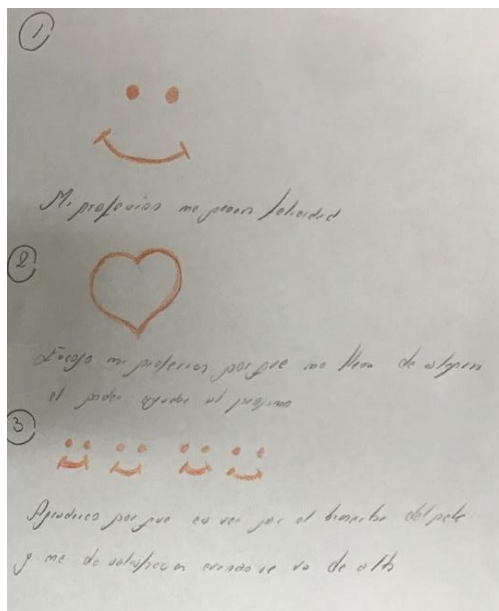 1
Mi profesion me genera felicidad
2
Escojo mi profesion por que me llena de alegria
el poder ayudar al proximo
3
por que es ver por el bienestar del pte
y me da satisfaccion cuando se va de alta